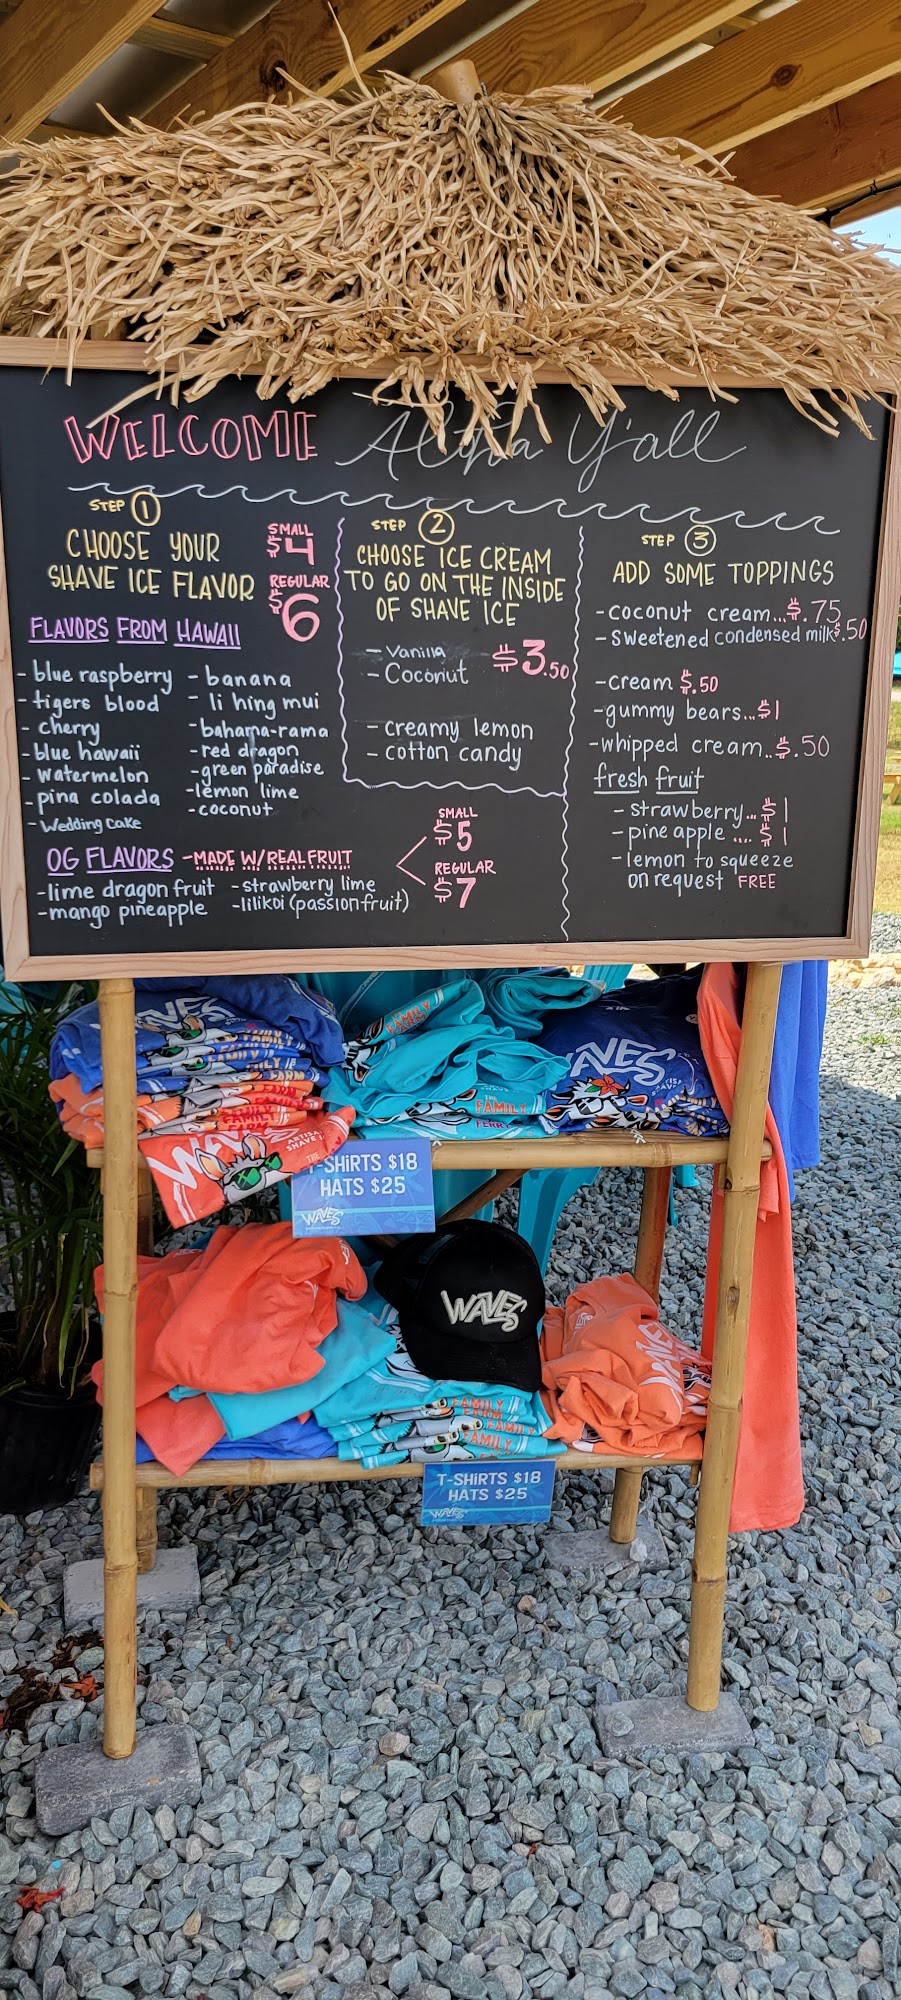 WELCOME Aloha Y'all
STEP 1
CHOOSE YOUR
SHAVE ICE FLAVOR
SMALL
$4
REGULAR
$6
FLAVORS FROM HAWAII
- blue raspberry
- tigers blood
- cherry
- blue hawaii
- watermelon
- pina colada
- Wedding Cake
- banana
- li hing mui
- bahama-rama
- red dragon
- green paradise
- lemon lime
- coconut
OG FLAVORS - MADE W/ REAL FRUIT
- lime dragon fruit
- mango pineapple
- strawberry lime
- lilikoi (passionfruit)
SMALL
$5
REGULAR
$7
STEP 2
CHOOSE ICE CREAM
TO GO ON THE INSIDE
OF SHAVE ICE
- Vanilla
- Coconut
$3.50
- creamy lemon
- cotton candy
STEP 3
ADD SOME TOPPINGS
- coconut cream...$.75
- sweetened condensed milk $.50
- cream $.50
- gummy bears...$1
- whipped cream..$.50
fresh fruit
- strawberry...$1
- pineapple....$1
- lemon to squeeze
on request FREE
WAVES
FAMILY
FARM
WAVES
THE
FAMILY
FERR
WAVES
ARTISAN
SHAVE I
THE
T-SHIRTS $18
HATS $25
WAVES
WAVES
FAMILY
FARM
FAMILY
FAMILY
T-SHIRTS $18
HATS $25
WAVES